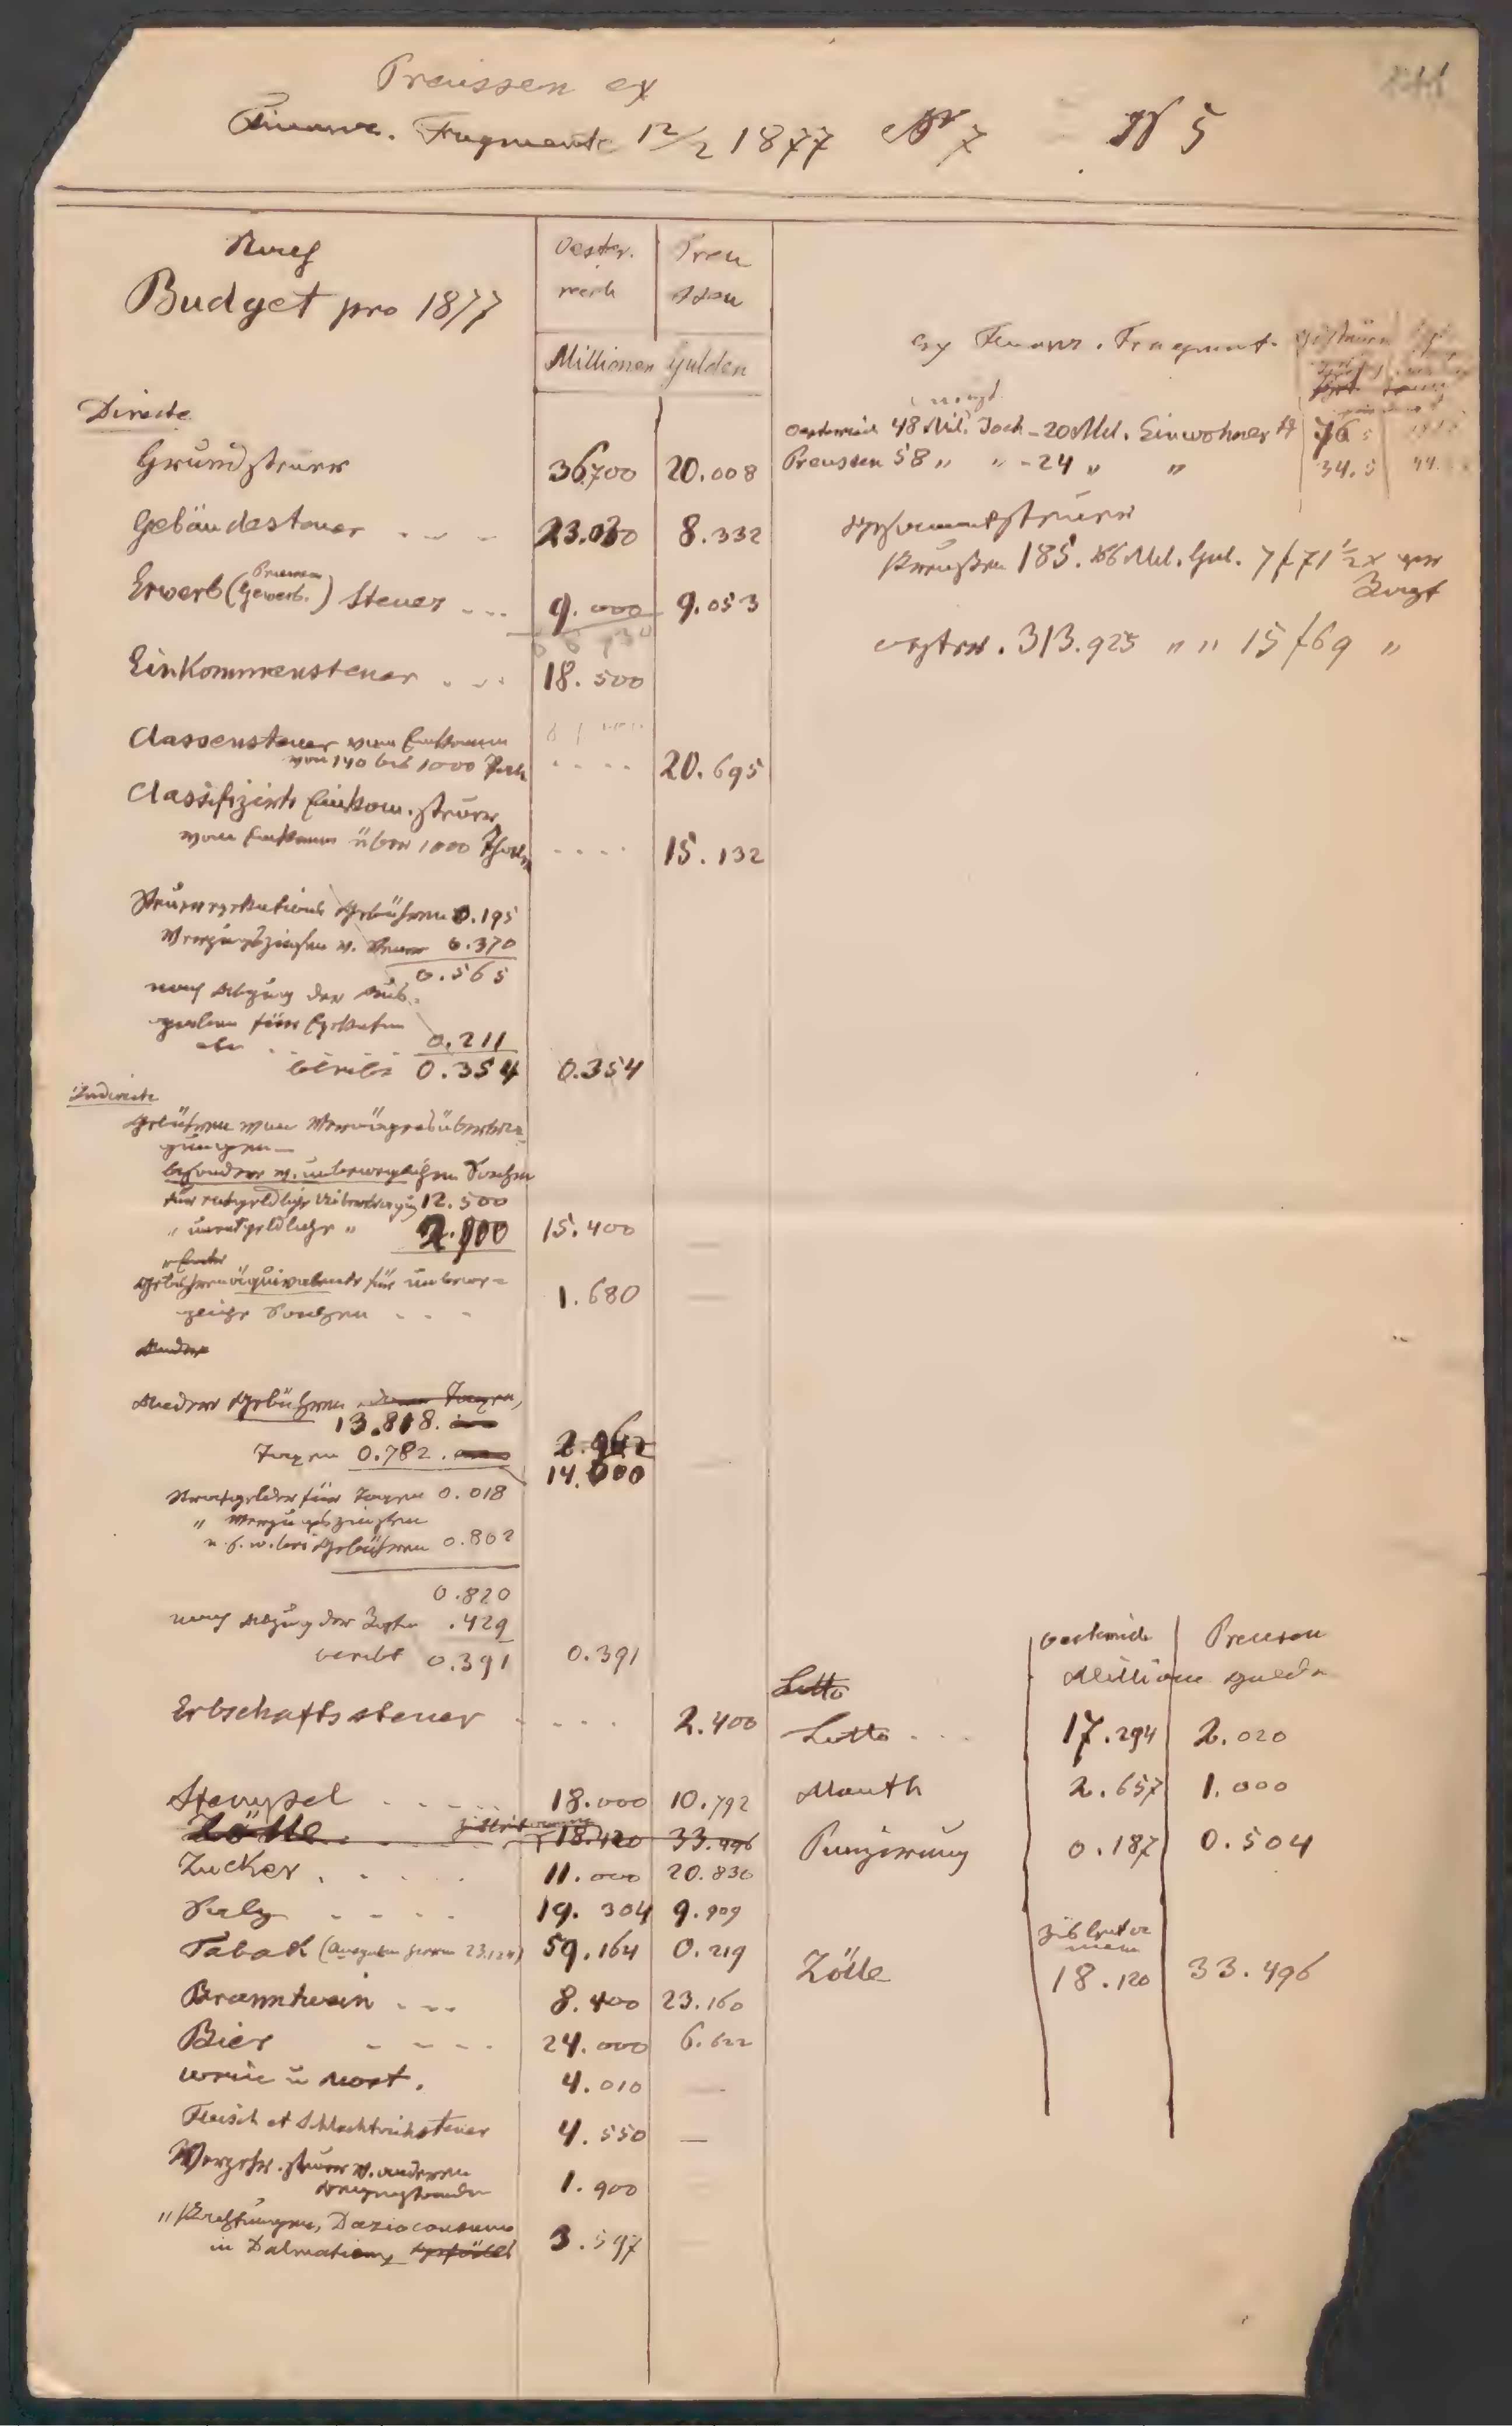 Preussen ex
Finanz. Fragmente 12/2 1877 No 7 No 5
Nach
Budget pro 1877
Oester.
reich
Preu
ssen
Millionen Gulden
Directe
Grundsteuer 36700 20.008
Gebäudesteuer 23.030 8.332
Erwerb (Preussen Gewerb.) Steuer 9.000 9.053
Einkommensteuer 18.500
Classensteuer vom Einkommen
von 140 bis 1000 20.695
Classifizirte Einkom. steuer
vom Einkommen über 1000 Thaler 15.132
Steuerexekutions Gebühren 0.195
Verzugszinsen v. Steuer 0.370
0.565
nach Abzug der Aus-
gaben für Exekution
0.211
bleibt 0.354 0.354
Indirecte
Gebühren von Vermögensübertra-
gungen
besonders v. unbeweglichen Sachen
für entgeldliche Übertragung 12.500
" unentgeldliche " 2.900 15.400 —
Gebührenäquivalent für unbewe-
gliche Sachen 1.680 —
Andere
Andere Gebühren, Taxen,
13.818.
Taxen 0.782.
14.000 —
Strafgelder für Taxen 0.018
" Verzugszinsen
u. s. w. bei Gebühren 0.802
0.820
nach Abzug der .429
bleibt 0.391 0.391
Erbschaftssteuer 2.400
Stempel 18.000 10.792
Zölle 18.120 33.496
Zucker 11.000 20.830
Salz 19.304 9.909
Tabak (Ausgaben hievon) 59.164 0.219
Branntwein 8.400 23.160
Bier 24.000 6.622
Wein u Most. 4.010 —
Fleisch et Schlachtviehsteuer 4.550 —
Verzehr. steuer v. anderen
1.900 —
" Pachtungen, Dazioconsumo
in Dalmatien 3.597 —
ex Finanz. Fragment.
Oesterreich 48 Mil. Joch – 20 Mil. Einwohner
Preussen 58 " " – 24 " " 34.5
Gesammtsteuer
Preußen 185. Mil. Gul. 7 f 71 ½ x per
Kopf
oestrr. 313.925 " " 15 f 69 "
Oesterreich Preussen
Millionen Gulden
Lotto
Lotto 17.294 2.020
Mauth 2.657 1.000
Punzirung 0.187 0.504
Zölle 18.120 33.496